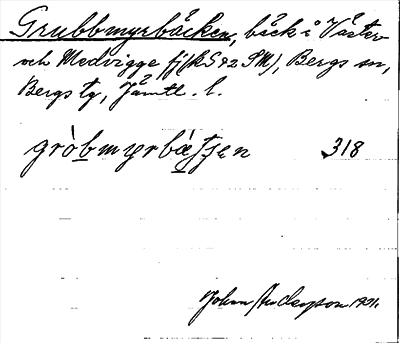 Grubbmyrbäcken, bäck i Väster-
och Medvigge fj (RS 92 SM), Bergs sn,
Bergs tg, Jämtl. l.
gròbmyrbäʃʃen 318
Johan Anderson 1931.